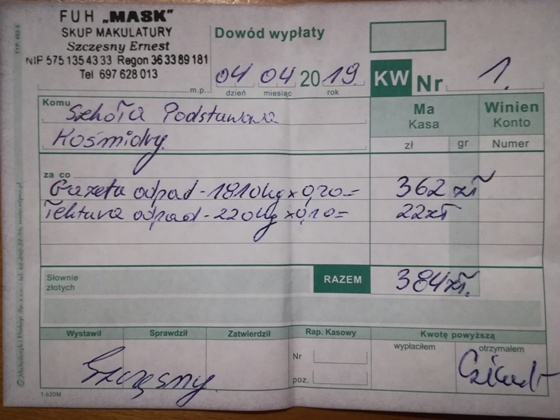 FUH „MASK"
SKUP MAKULATURY
Szczęsny Ernest
NIP 575 135 43 33 Regon 36 33 89 181
Tel 697 628 013
m.p.
Dowód wypłaty
04 04 2019
dzień miesiąc rok
KW Nr 1.
Komu
Szkoła Podstawowa
Kośmidry
Ma Winien
Kasa Konto
zł gr Numer
za co
Gazeta odpad - 1810kg x 0,20= 362 zł
Tektura odpad - 220kg x 0,10= 22zł
Słownie
złotych
RAZEM 384zł.
Wystawił Sprawdził Zatwierdził Rap. Kasowy Kwotę powyższą
wypłaciłem otrzymałem
Nr
poz.
Szczęsny